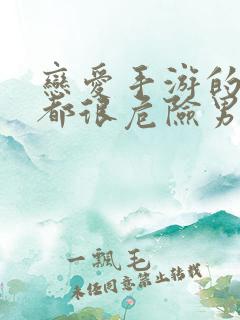 戀愛手游的
都很危險男
一飄毛
未經同意禁止轉載